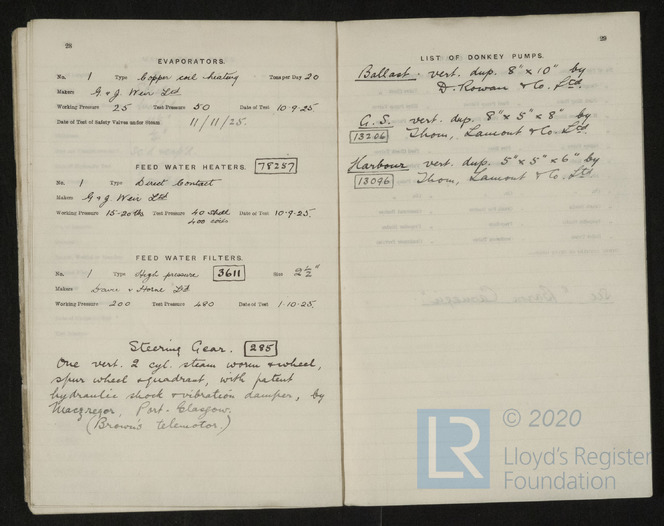 28
EVAPORATORS.
No. 1 Type Copper coil heating Tons per Day 20
Makers G. & J. Weir Ltd
Working Pressure 25 Test Pressure 50 Date of Test 10-9-25
Date of Test of Safety Valves under Steam 11/11/25.
FEED WATER HEATERS. 78287
No. 1 Type Direct Contact
Makers G & J. Weir Ltd
Working Pressure 15-20 lbs Test Pressure 40 shell 400 coils Date of Test 10-9-25.
FEED WATER FILTERS.
No. 1 Type High pressure 3611 Size 2½"
Makers Davie & Horne Ltd
Working Pressure 200 Test Pressure 480 Date of Test 1-10-25.
Steering Gear. 285
One vert. 2 cyl. steam worm & wheel,
spur wheel & quadrant, with patent
hydraulic shock & vibration damper, by
Macgregor, Port-Glasgow.
(Brown's telemotor.)
29
LIST OF DONKEY PUMPS.
Ballast. vert. dup. 8" x 10" by
D. Rowan & Co. Ltd.
G.S. vert. dup. 8" x 5" x 8" by
13206 Thom, Lamont & Co. Ltd
Harbour vert. dup. 5" x 5" x 6" by
13096 Thom, Lamont & Co. Ltd.
LR © 2020
Lloyd's Register
Foundation